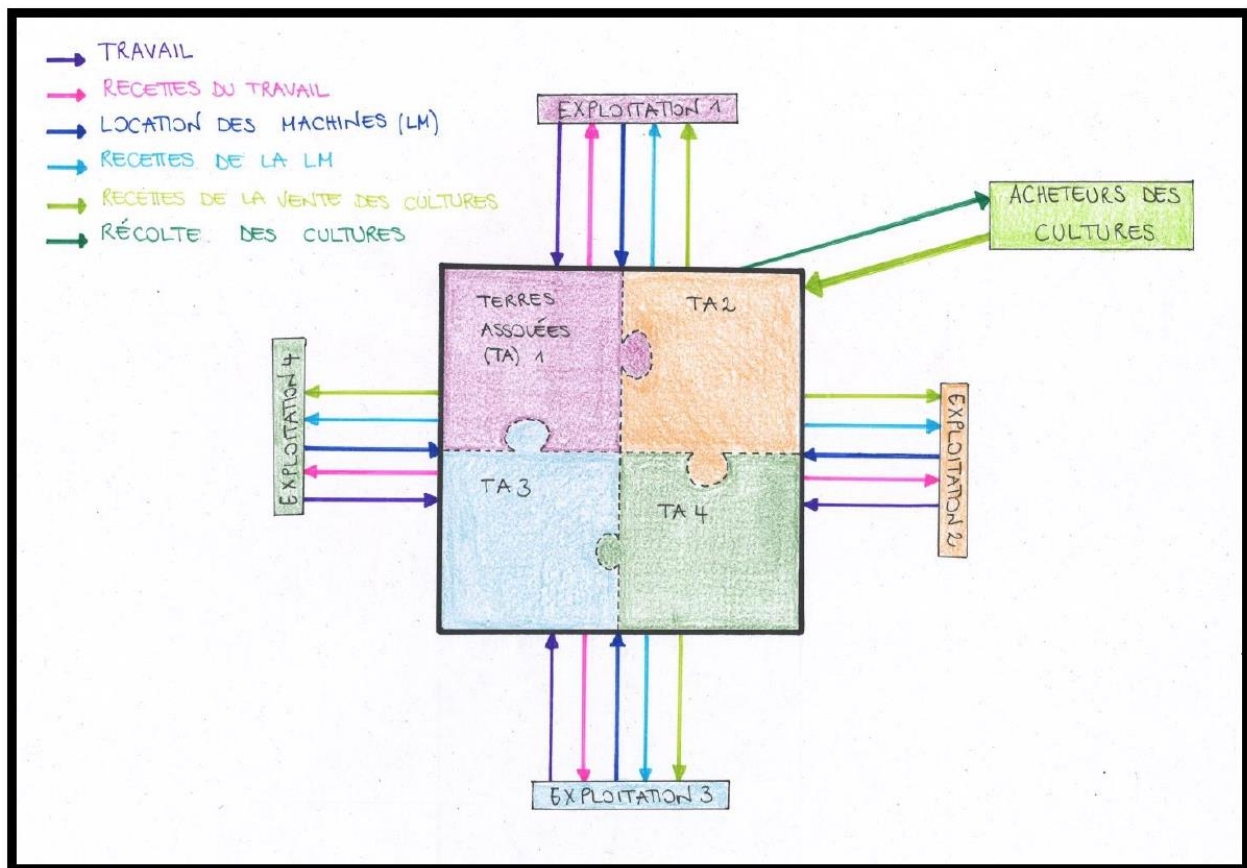 TRAVAIL
RECETTES DU TRAVAIL
LOCATION DES MACHINES (LM)
RECETTES DE LA LM
RECETTES DE LA VENTE DES CULTURES
RÉCOLTE DES CULTURES
EXPLOITATION 1
ACHETEURS DES
CULTURES
TERRES
ASSOLÉES
(TA) 1
TA2
EXPLOITATION 4
EXPLOITATION 2
TA3
TA4
EXPLOITATION 3